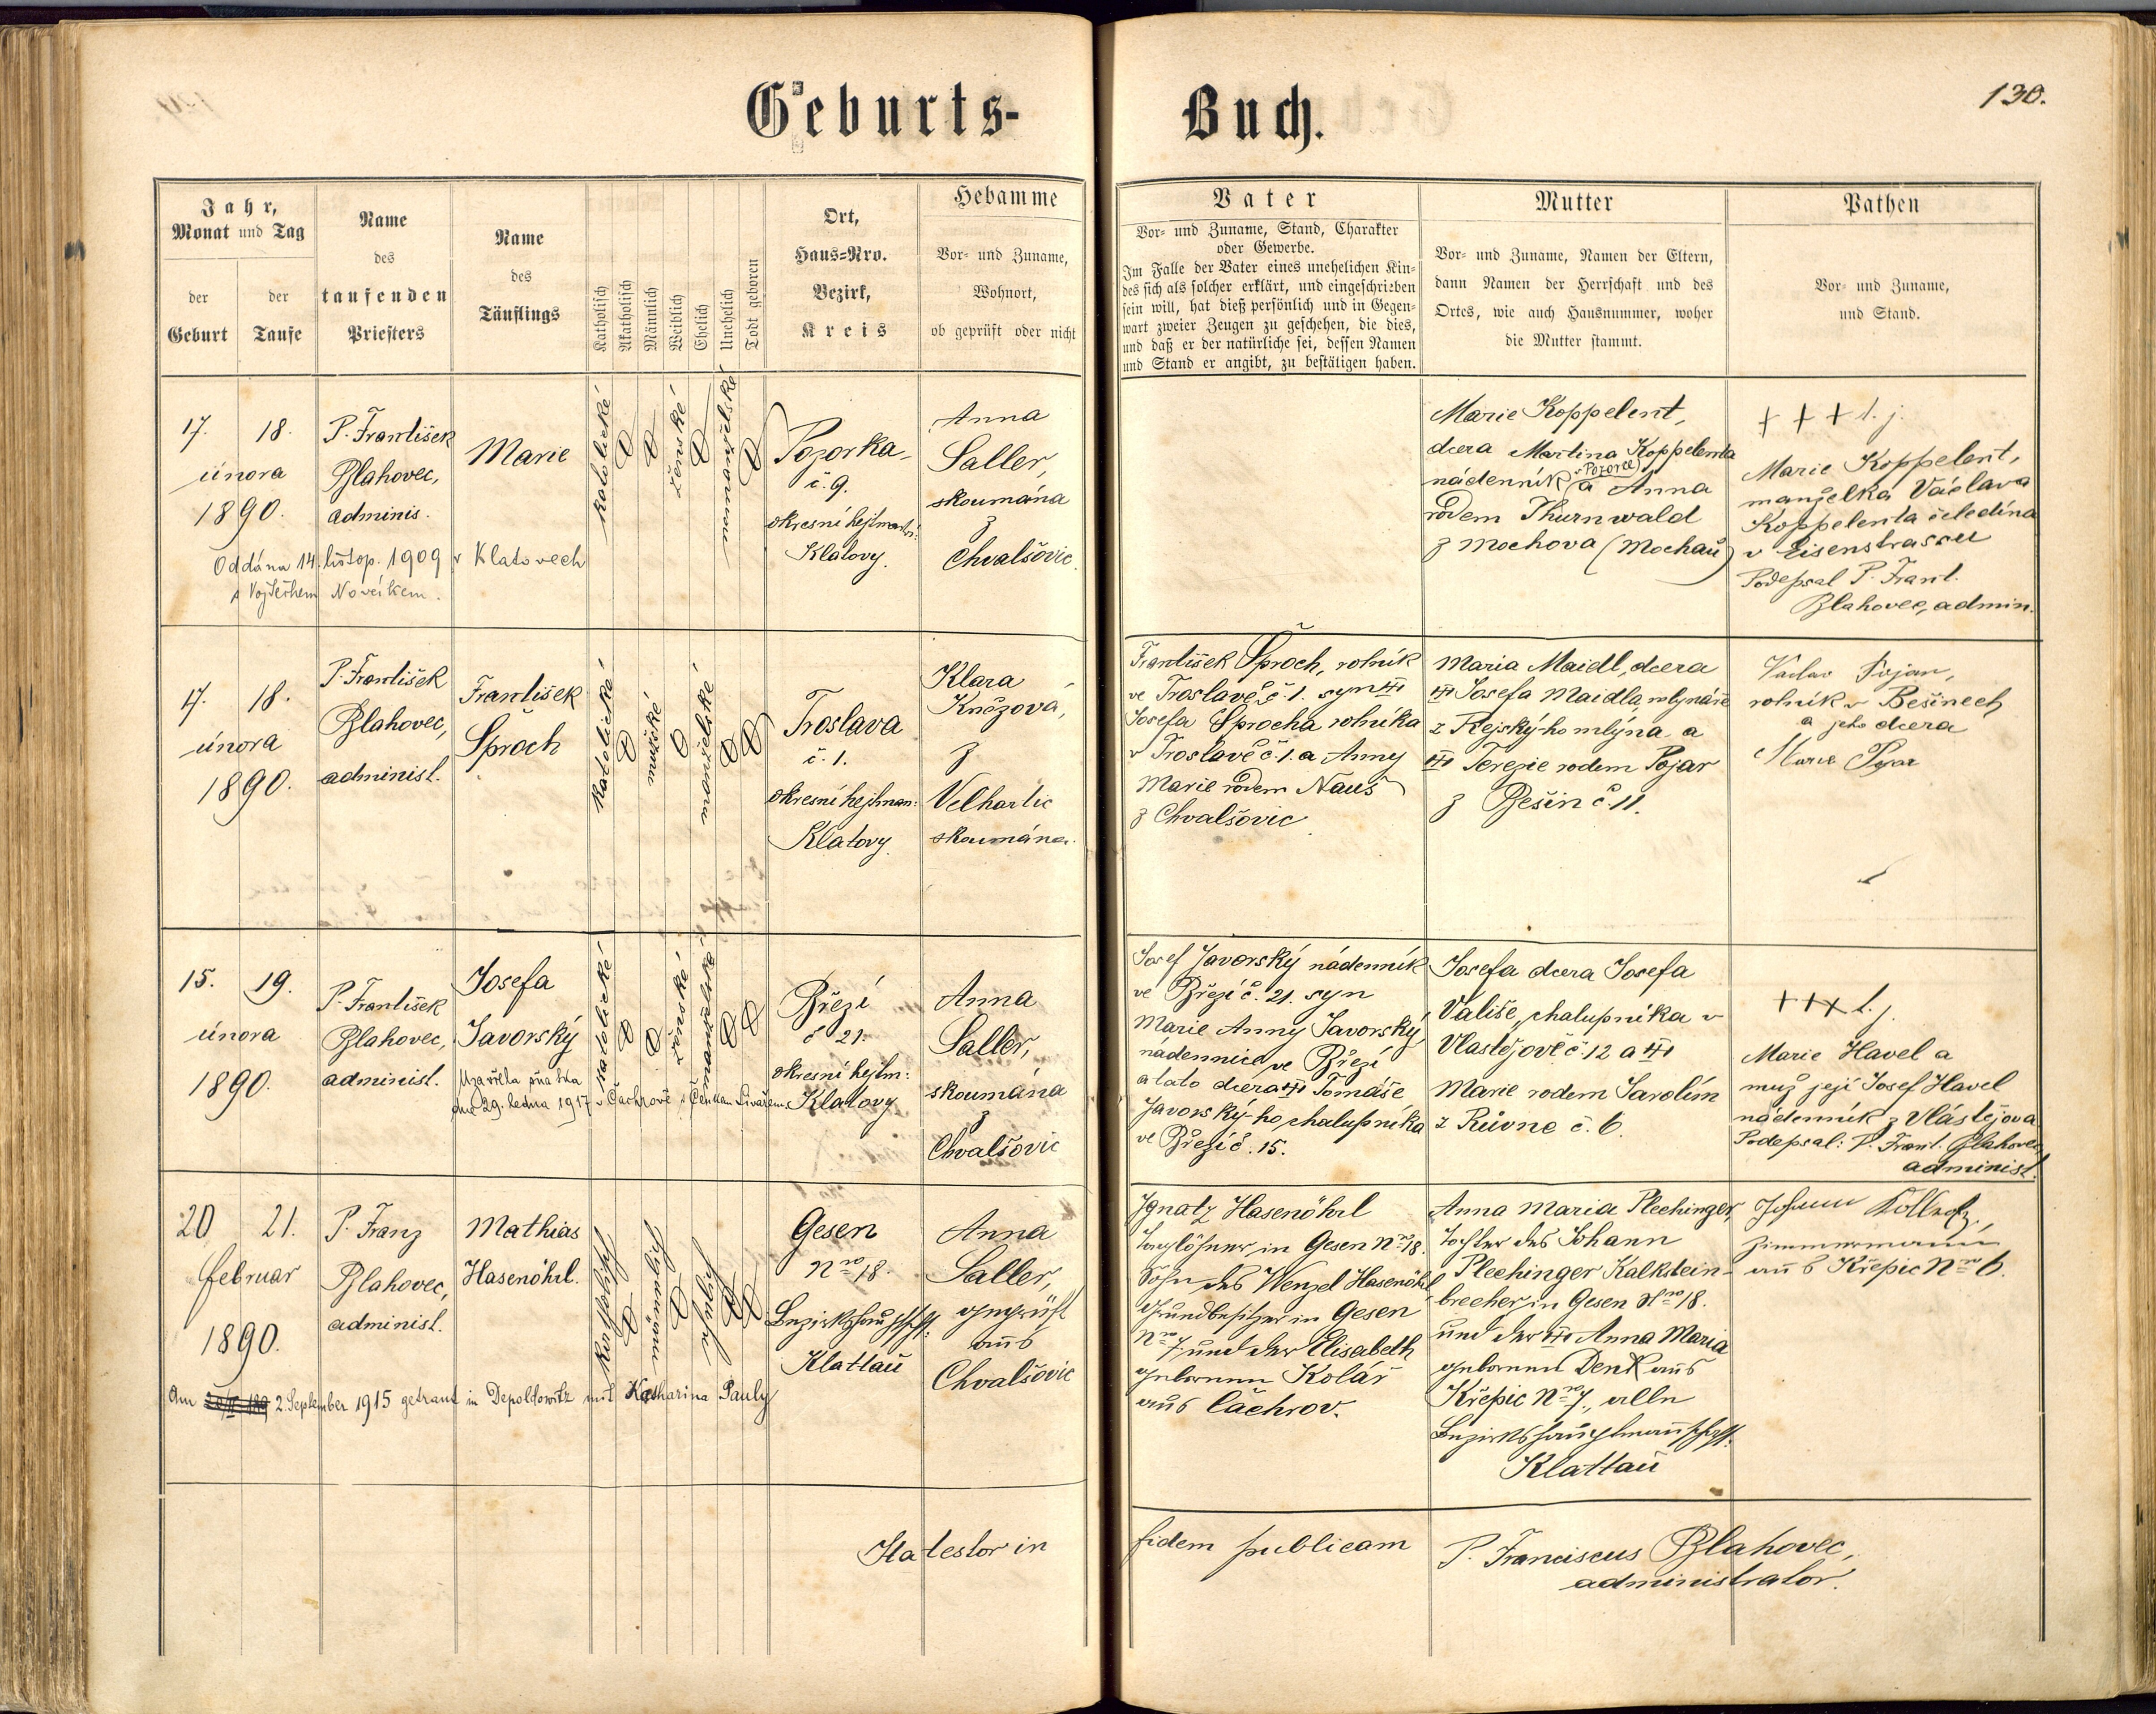 Geburts-
Buch.
130.
Jahr,
Monat und Tag
der
Geburt
der
Taufe
Name
des
taufenden
Priesters
Name
des
Täuflings
Katholisch
Akatholisch
Männlich
Weiblich
Ehelich
Unehelich
Todt geboren
Ort,
Haus-Nro.
Bezirk,
Kreis
Hebamme
Vor- und Zuname,
Wohnort,
ob geprüft oder nicht
Vater
Vor- und Zuname, Stand, Charakter
oder Gewerbe.
Im Falle der Vater eines unehelichen Kin-
des sich als solcher erklärt, und eingeschrieben
sein will, hat dieß persönlich und in Gegen-
wart zweier Zeugen zu geschehen, die dies,
und daß er der natürliche sei, dessen Namen
und Stand er angibt, zu bestätigen haben.
Mutter
Vor- und Zuname, Namen der Eltern,
dann Namen der Herrschaft und des
Ortes, wie auch Hausnummer, woher
die Mutter stammt.
Pathen
Vor- und Zuname,
und Stand.
17. 18.
února
1890.
P. František
Blahovec,
adminis.
Marie
katolické
ženské
nemanželské
Pozorka
č. 9.
okresní hejtmanství:
Klatovy.
Anna
Saller,
skoumána
z
Chvalšovic.
Oddána 14. listop. 1909 v Klatovech
s Vojtěchem Nováčkem.
Marie Koppelent,
dcera Martina Koppelenta
v Pozorce
nádenník a Anna
rodem Thurnwald
z Mochova (Mochau)
+ + + l. j.
Marie Koppelent,
manželka Václava
Koppelenta čeledína
v Eisenstrassu
Podepsal P. Frant.
Blahovec, admin.
17. 18.
února
1890.
P. František
Blahovec,
administ.
František
Šproch
katolické
mužské
manželské
Troslava
č. 1.
okresní hejtman:
Klatovy
Klara
Kněžová,
z
Velhartic
skoumána.
František Šproch, rolník
ve Troslavě č. 1. syn
Josefa Šprocha rolníka
v Troslavě č. 1. a Anny
Marie rodem Nauš
z Chvalšovic
Maria Maidl, dcera
Josefa Maidla, mlynáře
z Frejský-ho mlýna a
Terezie rodem Pojar
z Bešin č. 11.
Václav Pojar,
rolník v Bešinech
a jeho dcera
Marie Pojar
15. 19.
února
1890.
P. František
Blahovec,
administ.
Josefa
Javorský
katolické
ženské
manželské
Březí
č 21.
okresní hejtm:
Klatovy
Anna
Saller,
skoumána
z
Chvalšovic
Uzavřela sňatek
dne 29. ledna 1917 v Čachrově s Čeňkem
Josef Javorský nádenník
ve Březí č. 21. syn
Marie Anny Javorský,
nádennice ve Březí
a tato dcera Tomáše
Javorský-ho, chalupníka
ve Březí č. 15.
Josefa dcera Josefa
Vališe, chalupníka v
Vlastějově č. 12 a
Marie rodem Sarolím
z Růvne č. 6.
+++ l. j.
Marie Havel a
muž její Josef Havel
nádenník z Vlástějova
Podepsal: P. Frant. Blahovec
administ.
20 21.
februar
1890.
P. Franz
Blahovec,
administ.
Mathias
Hasenöhrl.
katholisch
männlich
ehelich
Gesen
Nro 18.
Bezirkshauptsch:
Klattau
Anna
Saller,
geprüft
aus
Chvalšovic
Am 2. September 1915 getraut in Depoldowitz mit Katharina Pauly
Ignatz Hasenöhrl
Taglöhner in Gesen Nro 18.
Sohn des Wenzel Hasenöhrl
Grundbesitzer in Gesen
Nro 7 und der Elisabeth
geborenen Kolář
aus Čachrov.
Anna Maria Plechinger,
Tochter des Johann
Plechinger Kalkstein-
brecher in Gesen Nro 18.
und der Anna Maria
geborenen Denk aus
Křepic Nro 7., alle
Bezirkshauptmannschaft:
Klattau
Johann
Zimmermann
aus Křepic Nro 6.
Ita testor in fidem publicam P. Franciscus Blahovec,
administrator.